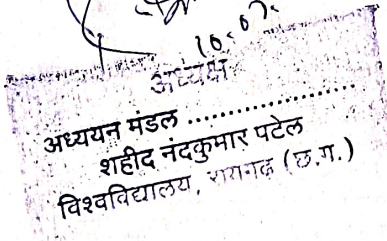 अध्यक्ष
अध्ययन मंडल ........................
शहीद नंदकुमार पटेल
विश्वविद्यालय, रायगढ़ (छ.ग.)